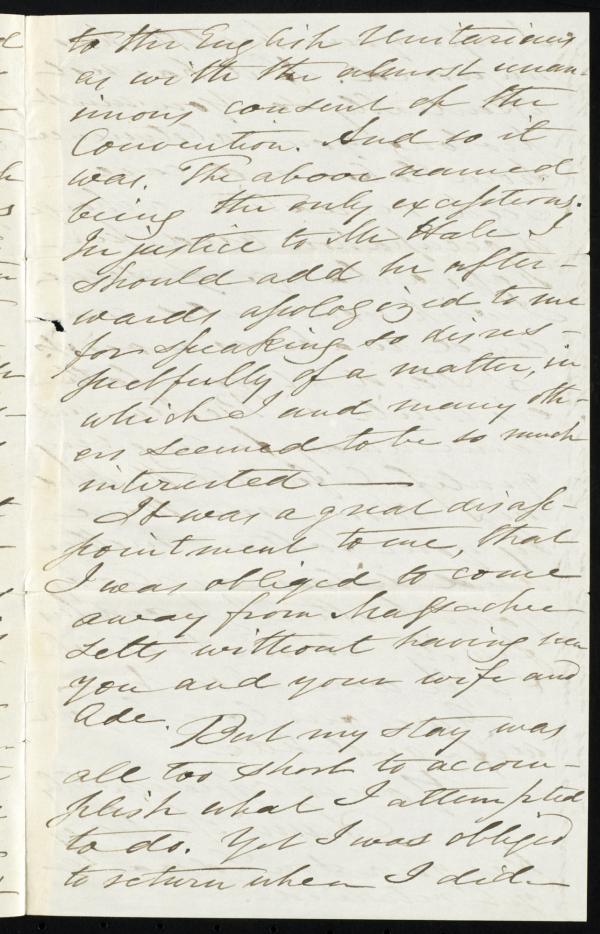 to the English Unitarians
as with the almost unan-
imous consent of the
Convention. And so it
was. The above named
being the only exceptions.
In justice to Mr Hale I
should add he after-
wards apologized to me
for speaking so disres-
pectfully of a matter, in
which I and many oth-
ers seemed to be so much
interested —
It was a great disap-
pointment to me, that
I was obliged to come
away from Massachu-
setts without having seen
you and your wife and
Ade.
But my stay was
all too short to accom-
plish what I attempted
to do. Yet I was obliged
to return when I did —